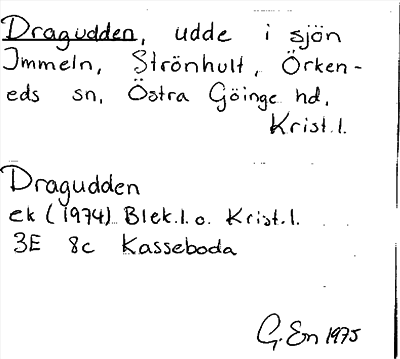 Dragudden, udde i sjön
Immeln, Strönhult, Örken-
eds sn, Östra Göinge hd,
Krist.l.
Dragudden
ek (1974) Blek.l. o. Krist.l.
3E 8c Kasseboda
G. En 1975